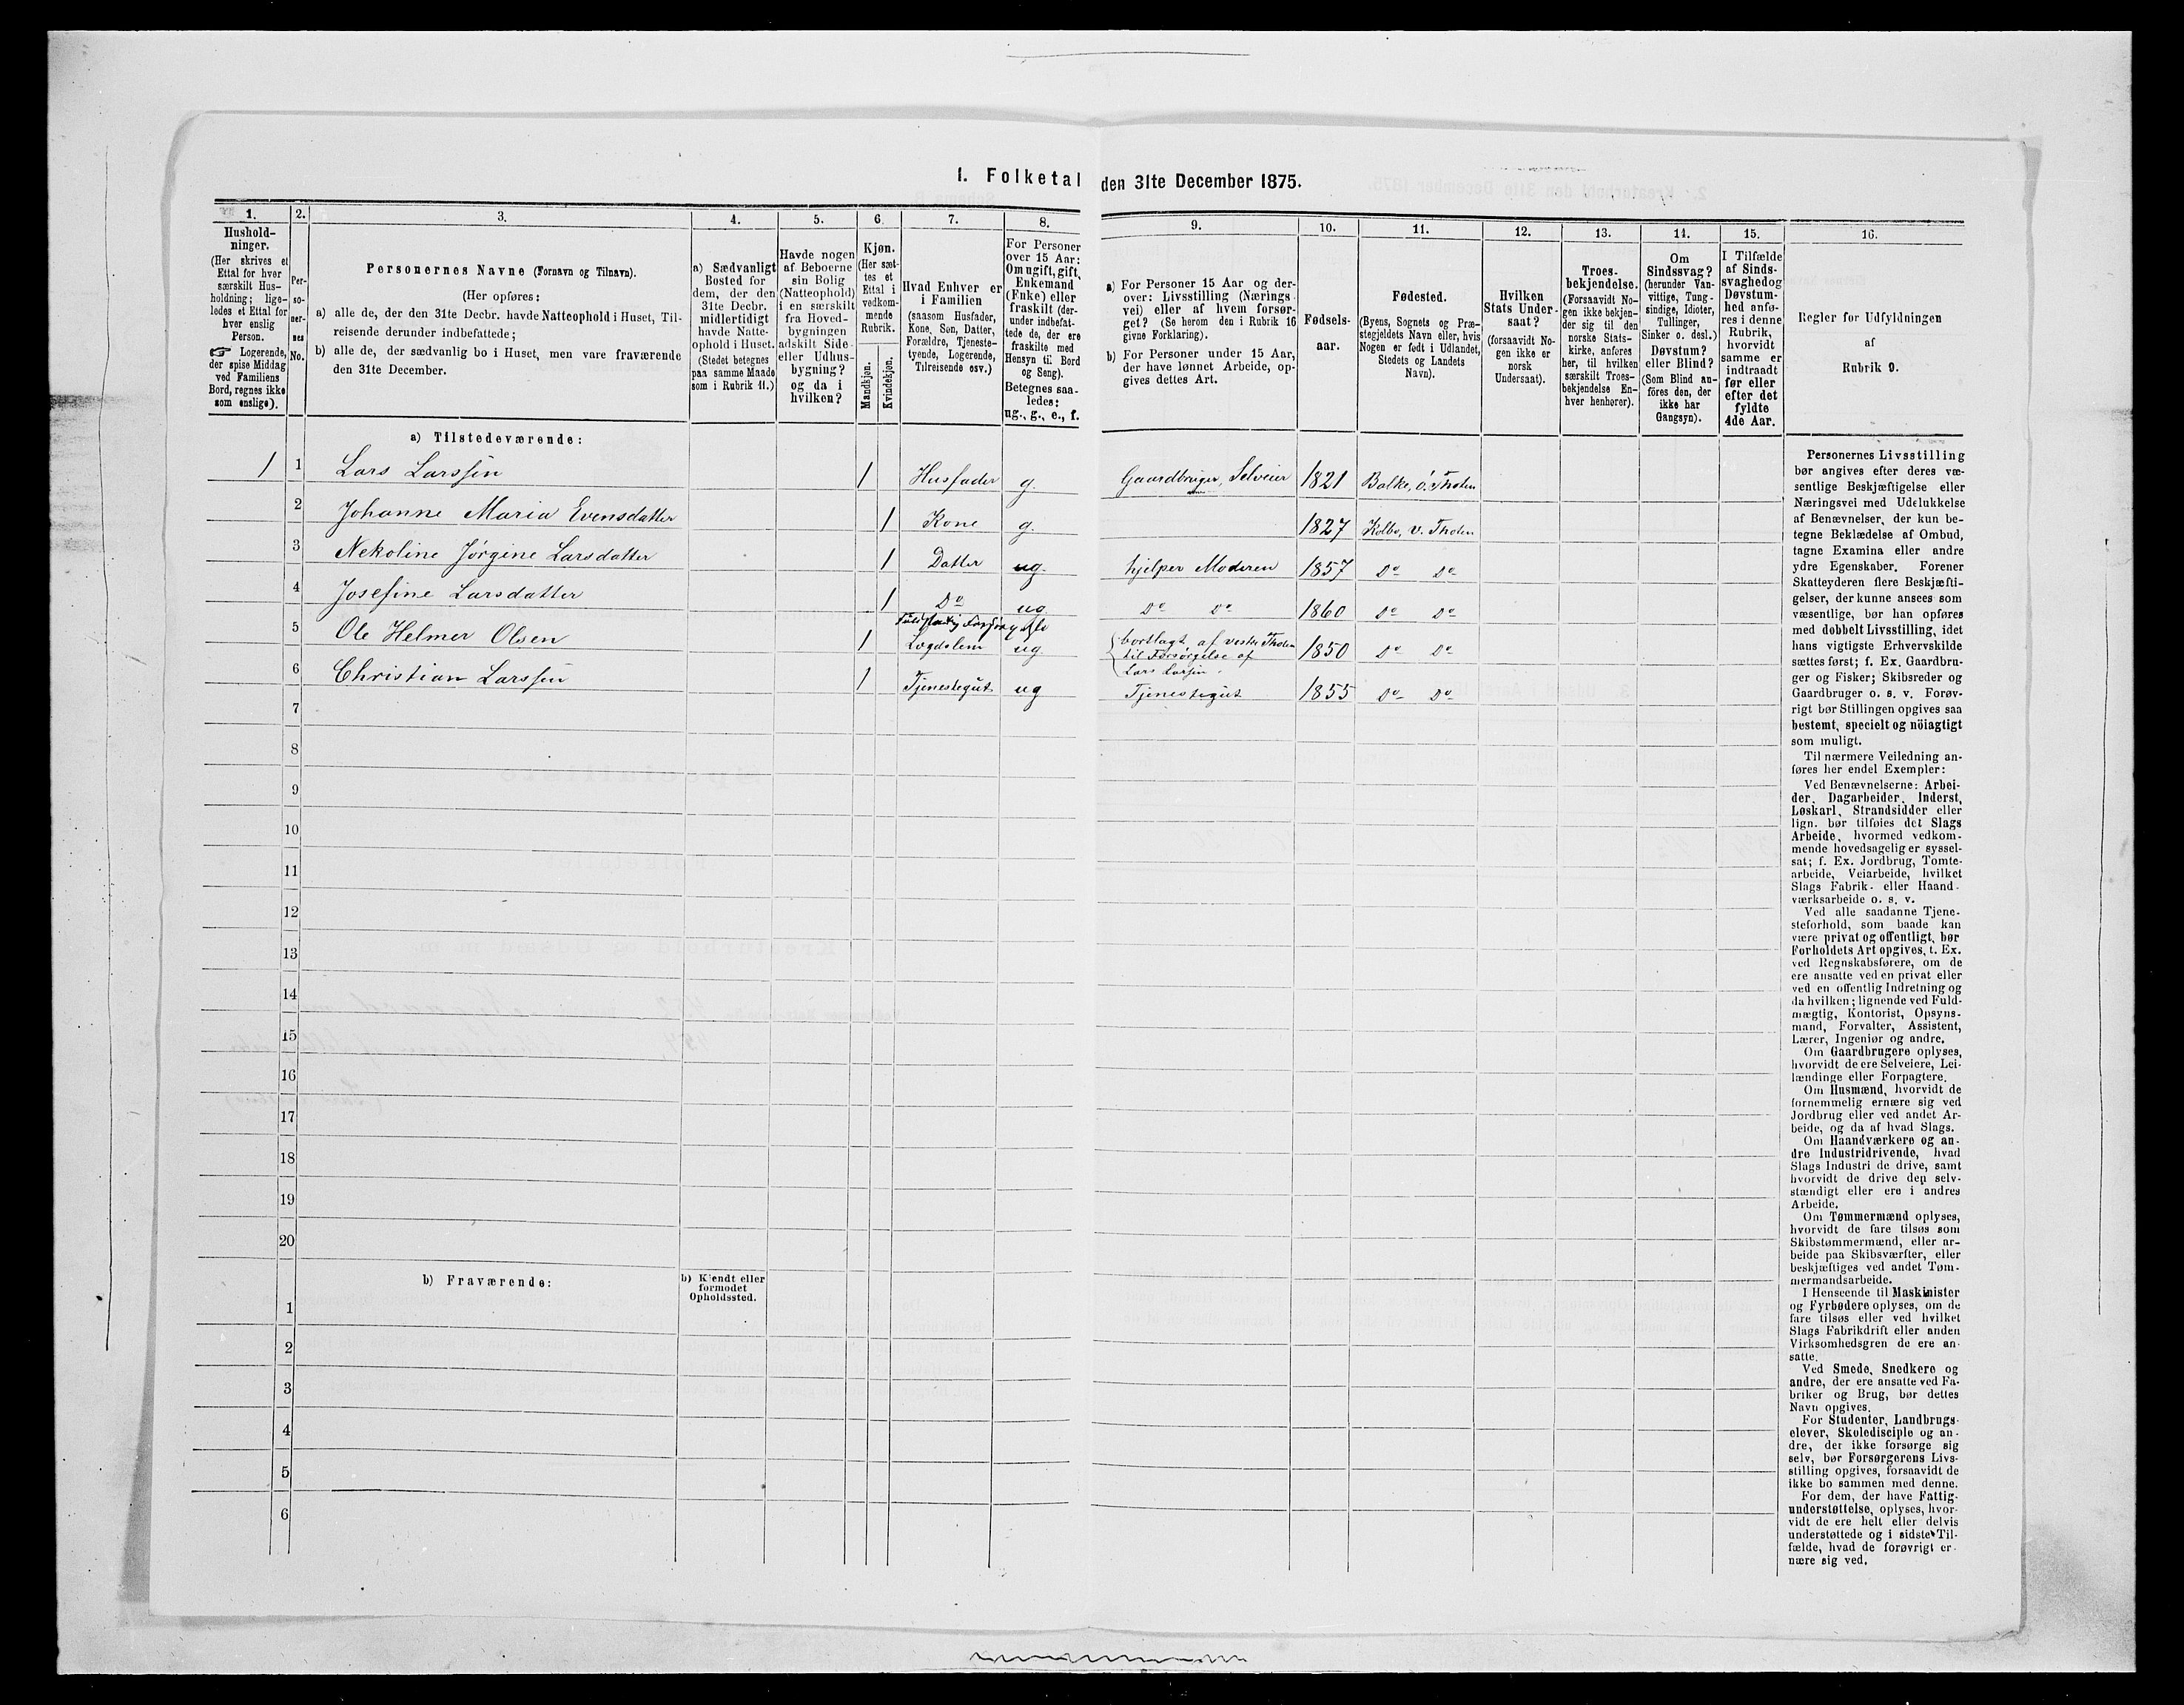 1. Folketal den 31te December 1875.
1. 2. 3. 4. 5. 6. 7. 8. 9. 10. 11. 12. 13. 14. 15. 16.
Hushold-
ninger.
(Her skrives et
Ettal for hver
særskilt Hus-
holdning; lige-
ledes et Ettal for
hver enslig
Person.
☞ Logerende,
der spise Middag
ved Familiens
Bord, regnes ikke
som enslige).
Per-
so-
ner-
nes
No.
Personernes Navne (Fornavn og Tilnavn).
(Her opføres:
a) alle de, der den 31te Decbr. havde Natteophold i Huset, Til-
reisende derunder indbefattede;
b) alle de, der sædvanlig bo i Huset, men vare fraværende
den 31te December.
a) Sædvanligt
Bosted for
dem, der den
31te Decbr.
midlertidigt
havde Natte-
ophold i Huset.
(Stedet betegnes
paa samme Maade
som i Rubrik 11.)
Havde nogen
af Beboerne
sin Bolig
(Natteophold)
i en særskilt
fra Hoved-
bygningen
adskilt Side-
eller Udhus-
bygning?
og da i
hvilken?
Kjøn.
(Her sæt-
tes et
Ettal i
vedkom-
mende
Rubrik.
Mandkjøn.
Kvindekjøn.
Hvad Enhver er
i Familien
(saasom Husfader,
Kone, Søn, Datter,
Forældre, Tjeneste-
tyende, Logerende,
Tilreisende osv.)
For Personer
over 15 Aar:
Om ugift, gift,
Enkemand
(Enke) eller
fraskilt (der-
under indbefat-
tede de, der ere
fraskilte med
Hensyn til Bord
og Seng).
Betegnes saa-
ledes:
ug., g., e., f.
a) For Personer 15 Aar og der-
over: Livsstilling (Nærings-
vei) eller af hvem forsør-
get? (Se herom den i Rubrik 16
givne Forklaring).
b) For Personer under 15 Aar,
der have lønnet Arbeide, op-
gives dettes Art.
Fødsels-
aar.
Fødested.
(Byens, Sognets og Præ-
stegjeldets Navn eller, hvis
Nogen er født i Udlandet,
Stedets og Landets
Navn).
Hvilken
Stats Under-
saat?
(forsaavidt No-
gen ikke er
norsk
Undersaat).
Troes-
bekjendelse.
(Forsaavidt No-
gen ikke bekjen-
der sig til den
norske Stats-
kirke, anføres
her, til hvilken
særskilt Troes-
bekjendelse En-
hver henhører).
Om
Sindssvag?
(herunder Van-
vittige, Tung-
sindige, Idioter,
Tullinger,
Sinker o. desl.)
Døvstum?
eller Blind?
(Som Blind an-
føres den, der
ikke har
Gangsyn).
I Tilfælde
af Sinds-
svaghed og
Døvstum-
hed anfø-
res i denne
Rubrik,
hvorvidt
samme er
indtraadt
før eller
efter det
fyldte
4de Aar.
Regler for Udfyldningen
af
Rubrik 9.
a) Tilstedeværende:
1 1 Lars Larssen 1 Husfader g. Gaardbruger, Selveier 1821 Balke, ø. Thoten
2 Johanne Maria Evensdatter 1 Kone g. 1827 Kolbo, v. Thoten
3 Nekoline Jørgine Larsdatter 1 Datter ug. hjelper Moderen 1857 Do Do
4 Josefine Larsdatter 1 Do ug Do Do 1860 Do Do
5 Ole Helmer Olsen 1 Lægdslem ug. bortlagt af vestre Thoten
til Forsørgelse af
Lars Larsen. 1850 Do Do
6 Christian Larssen 1 Tjenestegut ug Tjenestegut 1855 Do Do
7
8
9
10
11
12
13
14
15
16
17
18
19
20
b) Fraværende:
b) Kjendt eller
formodet
Opholdssted.
1
2
3
4
5
6
Personernes Livsstilling
bør angives efter deres væ-
sentlige Beskjæftigelse eller
Næringsvei med Udelukkelse
af Benævnelser, der kun be-
tegne Beklædelse af Ombud,
tagne Examina eller andre
ydre Egenskaber. Forener
Skatteyderen flere Beskjæfti-
gelser, der kunne ansees som
væsentlige, bør han opføres
med dobbelt Livsstilling, idet
hans vigtigste Erhvervskilde
sættes først; f. Ex. Gaardbru-
ger og Fisker; Skibsreder og
Gaardbruger o. s. v. Forøv-
rigt bør Stillingen opgives saa
bestemt, specielt og nöiagtigt
som muligt.
Til nærmere Veiledning an-
føres her endel Exempler:
Ved Benævnelserne: Arbei-
der, Dagarbeider, Inderst,
Løskarl, Strandsidder eller
lign. bør tilføies det Slags
Arbeide, hvormed vedkom-
mende hovedsagelig er syssel-
sat; f. Ex. Jordbrug, Tomte-
arbeide, Veiarbeide, hvilket
Slags Fabrik- eller Haand-
værksarbeide o. s. v.
Ved alle saadanne Tjene-
steforhold, som baade kan
være privat og offentligt, bør
Forholdets Art opgives, t. Ex.
ved Regnskabsførere, om de
ere ansatte ved en privat eller
ved en offentlig Indretning og
da hvilken; lignende ved Fuld-
mægtig, Kontorist, Opsyns-
mand, Forvalter, Assistent,
Lærer, Ingeniør og andre.
Om Gaardbrugere oplyses,
hvorvidt de ere Selveiere, Lei-
lændinge eller Forpagtere.
Om Husmænd, hvorvidt de
fornemmelig ernære sig ved
Jordbrug eller ved andet Ar-
beide, og da af hvad Slags.
Om Haandværkere og an-
dre Industridrivende, hvad
Slags Industri de drive, samt
hvorvidt de drive den selv-
stændigt eller ere i andres
Arbeide.
Om Tømmermænd oplyses,
hvorvidt de fare tilsøs som
Skibstømmermænd, eller ar-
beide paa Skibsværfter, eller
beskjæftiges ved andet Tøm-
mermandsarbeide.
I Henseende til Maskinister
og Fyrbødere oplyses, om de
fare tilsøs eller ved hvilket
Slags Fabrikdrift eller anden
Virksomhedsgren de ere an-
satte.
Ved Smede, Snedkere og
andre, der ere ansatte ved Fa-
briker og Brug, bør dettes
Navn opgives.
For Studenter, Landbrugs-
elever, Skoledisciple og an-
dre, der ikke forsørge sig
selv, bør Forsørgerens Livs-
stilling opgives, forsaavidt de
ikke bo sammen med denne.
For dem, der have Fattig-
understøttelse, oplyses, hvor-
vidt de ere helt eller delvis
understøttede og i sidste Til-
fælde, hvad de forøvrigt er-
nære sig ved.